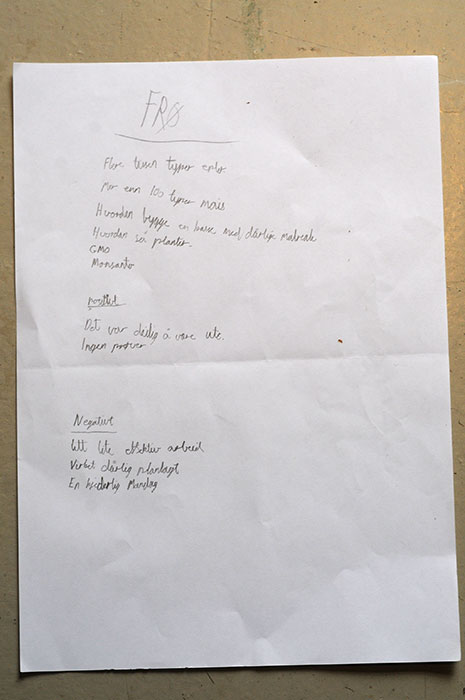 FRØ
Flere tusen typer epler
Mer enn 100 typer mais
Hvordan bygge en basse med dårlige materiale
Hvordan så planter.
GMO
Monsanto
positivt
Det var deilig å være ute.
Ingen prøver
Negativt
litt lite effektiv arbeid
Virket dårlig planlagt
En kjedelig Mandag